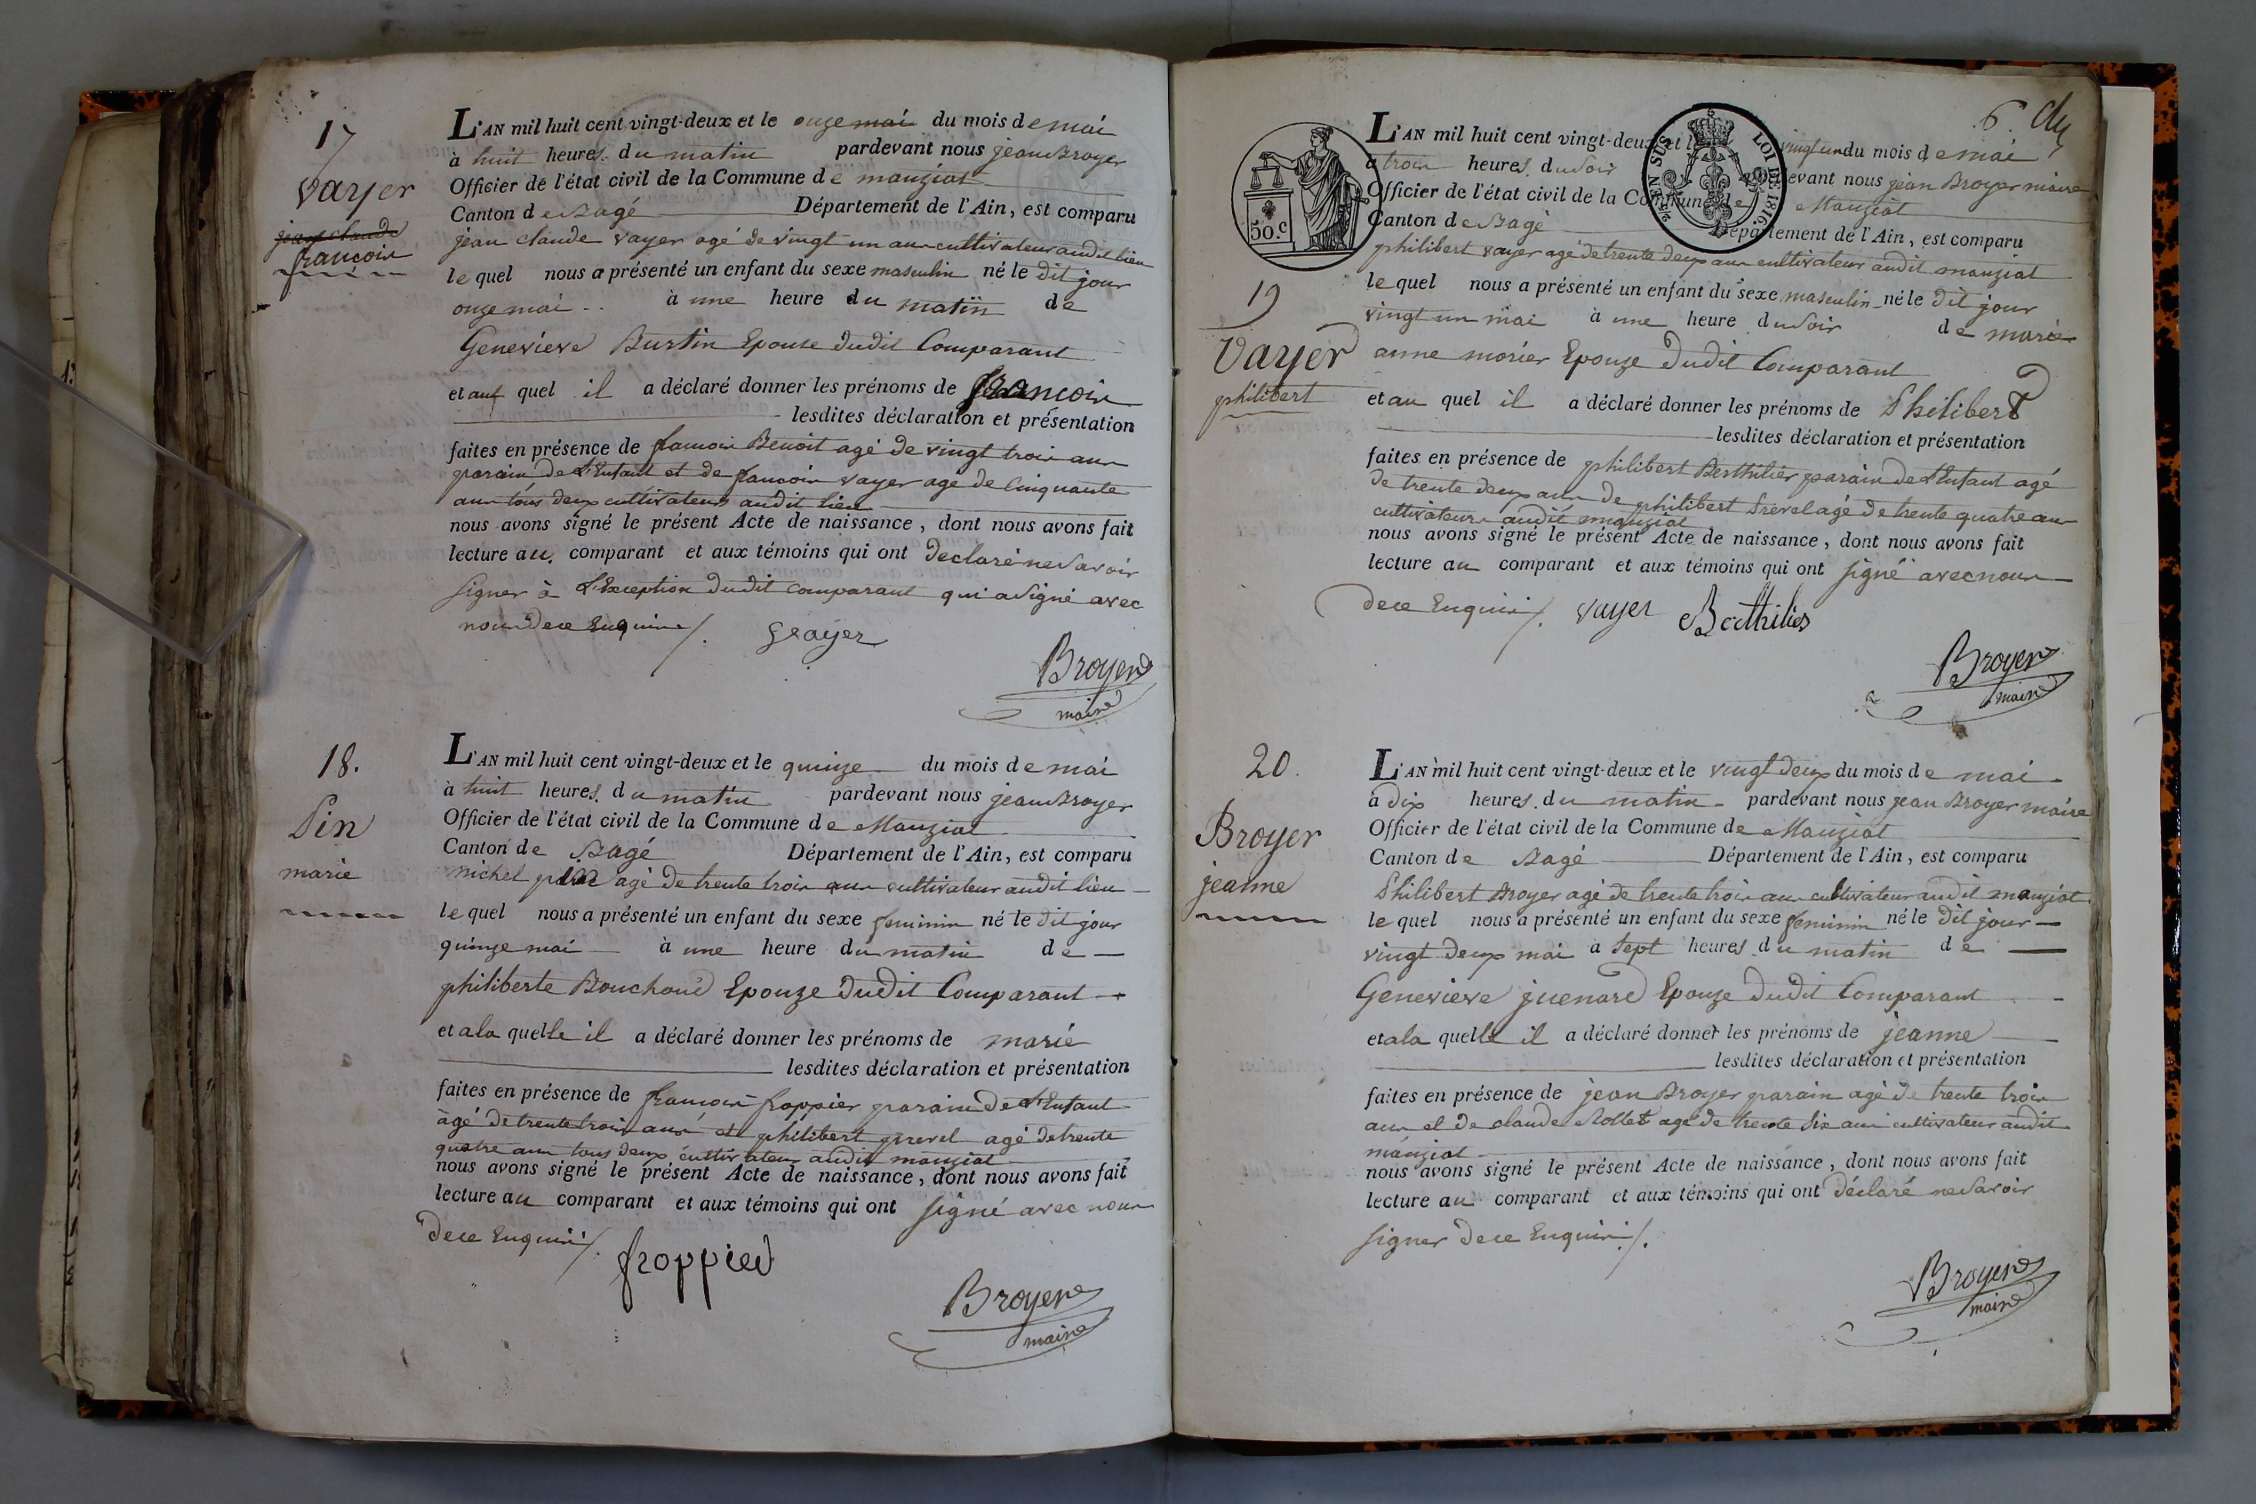 17
Vayer
jean claude
francois
L'AN mil huit cent vingt-deux et le onze mai du mois de mai
à huit heures du matin pardevant nous jean Broyer
Officier de l'état civil de la Commune de manziat
Canton de Bagé Département de l'Ain, est comparu
jean claude vayer agé de vingt un ans cultivateur audit lieu
le quel nous a présenté un enfant du sexe masculin né le dit jour
onze mai à une heure du matin de
Genevieve Burtin Epouse dudit Comparant
et au quel il a déclaré donner les prénoms de francois
lesdites déclaration et présentation
faites en présence de francois Benoit agé de vingt trois ans
parain de l'Enfant et de francois vayer agé de Cinquante
ans tous deux cultivateurs audit lieu
nous avons signé le présent Acte de naissance, dont nous avons fait
lecture au comparant et aux témoins qui ont declaré ne savoir
signer à l'Exception dudit comparant qui a signé avec
nous de ce Enquis /.
Broyer
maire
18.
Pin
marie
L'AN mil huit cent vingt-deux et le quinze du mois de mai
à huit heures du matin pardevant nous jean Broyer
Officier de l'état civil de la Commune de Manziat
Canton de Bagé Département de l'Ain, est comparu
michel pin agé de trente trois ans cultivateur audit lieu
le quel nous a présenté un enfant du sexe feminin né le dit jour
quinze mai à une heure du matin de
philiberte Bouchoud Epouze dudit Comparant
et a la quelle il a déclaré donner les prénoms de marie
lesdites déclaration et présentation
faites en présence de francois froppier parain de l'Enfant
âgé de trente trois ans et philibert prevel agé de trente
quatre ans tous deux cultivateurs audit manziat
nous avons signé le présent Acte de naissance, dont nous avons fait
lecture au comparant et aux témoins qui ont signé avec nous
de ce Enquis /.
froppier
Broyer
maire
6
50.c
EN SUS
LOI DE 1816.
19
Vayer
philibert
L'AN mil huit cent vingt-deux et le vingt un du mois de mai
à trois heures du soir pardevant nous jean Broyer maire
Officier de l'état civil de la Commune de Manziat
Canton de Bagé Département de l'Ain, est comparu
philibert vayer agé de trente deux ans cultivateur audit manziat
le quel nous a présenté un enfant du sexe masculin né le dit jour
vingt un mai à une heure du soir de marie
anne morier Epouze dudit Comparant
et au quel il a déclaré donner les prénoms de Philibert
lesdites déclaration et présentation
faites en présence de philibert Berthilier parain de l'Enfant agé
de trente deux ans de philibert Prevel agé de trente quatre ans
cultivateurs audit manziat
nous avons signé le présent Acte de naissance, dont nous avons fait
lecture au comparant et aux témoins qui ont signé avec nous
de ce Enquis /. vayer Berthilier
Broyer
maire
20.
Broyer
jeanne
L'AN mil huit cent vingt-deux et le vingt deux du mois de mai
à dix heures du matin pardevant nous jean Broyer maire
Officier de l'état civil de la Commune de Manziat
Canton de Bagé Département de l'Ain, est comparu
Philibert Broyer agé de trente trois ans cultivateur audit manziat
le quel nous a présenté un enfant du sexe feminin né le dit jour
vingt deux mai à sept heures du matin de
Genevieve juenard Epouze dudit Comparant
et a la quelle il a déclaré donner les prénoms de jeanne
lesdites déclaration et présentation
faites en présence de jean Broyer parain agé de trente trois
ans et de claude Rollet agé de trente six ans cultivateur audit
manziat
nous avons signé le présent Acte de naissance, dont nous avons fait
lecture au comparant et aux témoins qui ont déclaré ne savoir
signer de ce Enquis /.
Broyer
maire